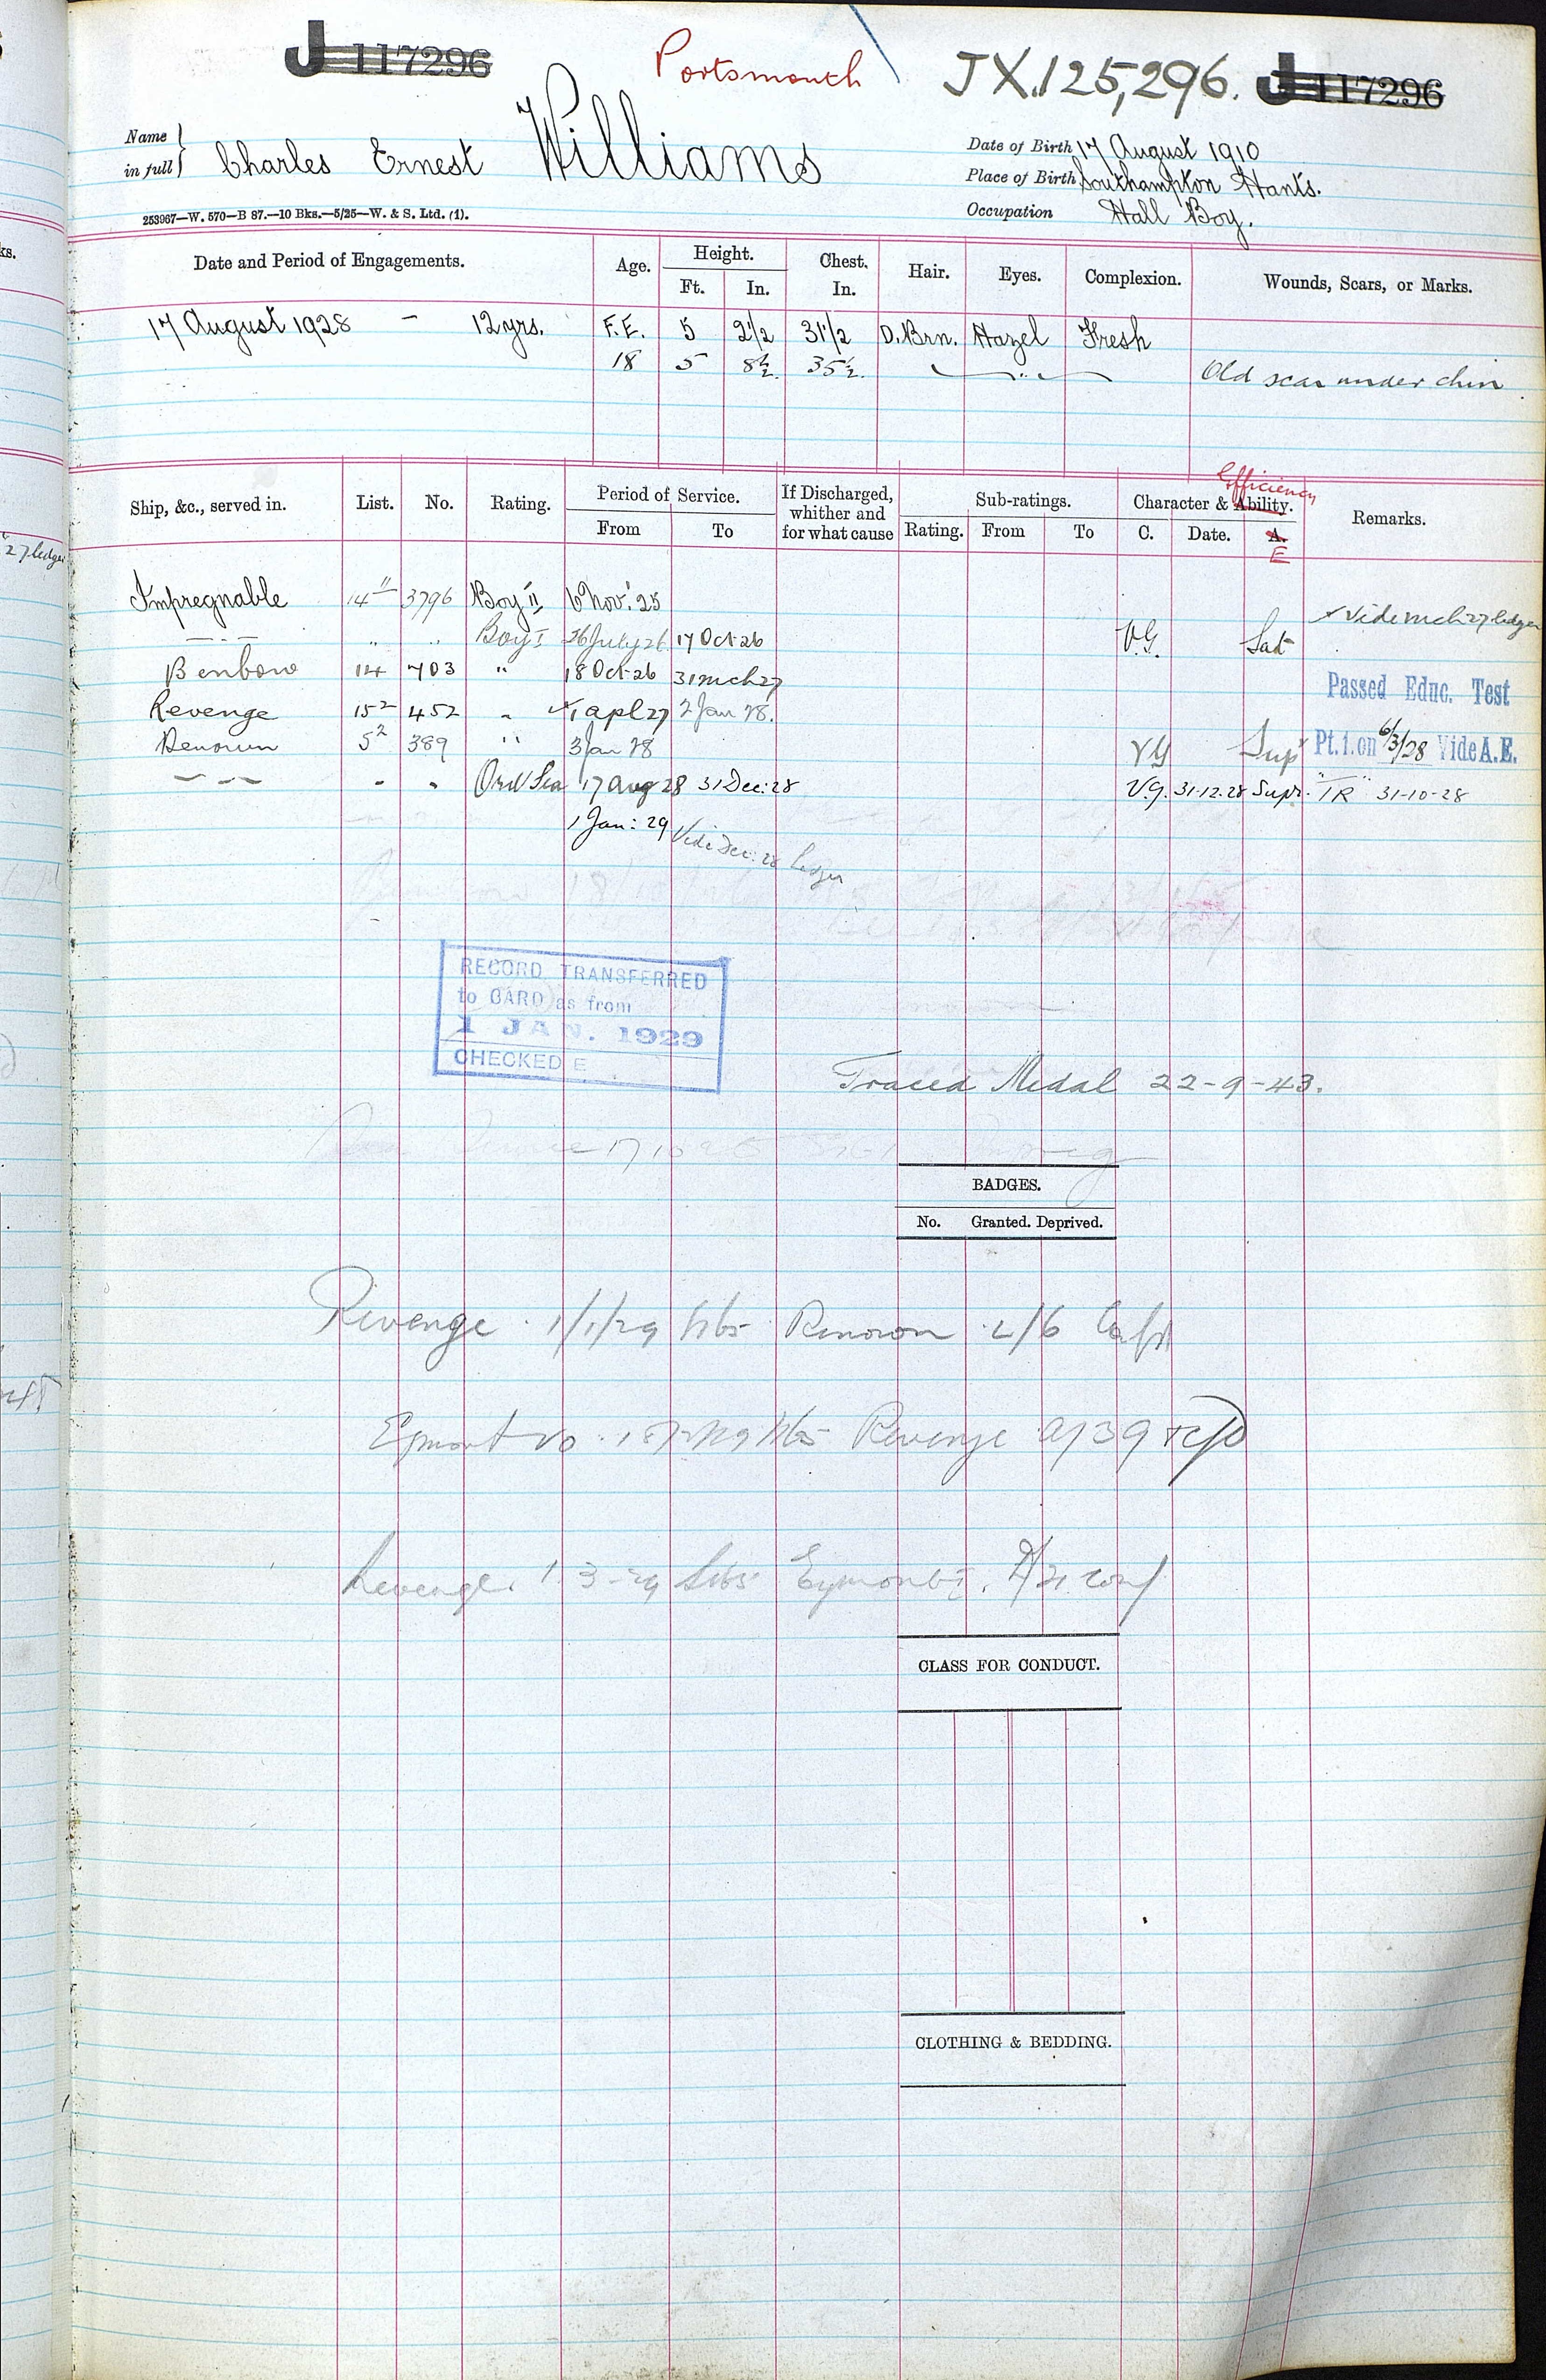 J 117296 Portsmouth JX.125,296. J 117296
Name in full } Charles Ernest Williams
Date of Birth 17 August 1910
Place of Birth Southampton Hants.
Occupation Hall Boy.
253967—W. 570—B 87.—10 Bks.—5/25—W. & S. Ltd. (1).
Date and Period of Engagements. Age. Height. Ft. In. Chest. In. Hair. Eyes. Complexion. Wounds, Scars, or Marks.
17 August 1928 - 12 yrs. F.E. 5 2 1/2 31 1/2 D. Brn. Hazel Fresh
18 5 8 1/2 35 1/2 " Old scar under chin
Efficiency
Ship, &c., served in. List. No. Rating. Period of Service. From To If Discharged, whither and for what cause Sub-ratings. Rating. From To Character & Ability. C. Date. A. E Remarks.
27 ledger
Impregnable 14" 3796 Boy II 6 Nov: 25
— " — " " Boy I 26 July 26 17 Oct 26 V.G. Sat ✓ Vide Mch 27 ledger
Benbow 14 703 " 18 Oct 26 31 Mch 27 Passed Educ. Test
Revenge 15² 452 " ✓ 1 Apl 27 2 Jan 28.
Renown 5² 389 " 3 Jan 28 VG Supr Pt. 1. on 6/3/28 Vide A.E.
— " — " " Ord Sea 17 Aug 28 31 Dec: 28 V.G. 31.12.28 Supr. "TR" 31-10-28
1 Jan: 29 Vide Dec: 28 Ledger
RECORD TRANSFERRED
to CARD as from
1 JAN. 1929
CHECKED E
Traced Medal 22-9-43.
BADGES.
No. Granted. Deprived.
Revenge 1/1/29 Renown 2/6
Egmont Revenge
Revenge 1.3-29 Egmont
CLASS FOR CONDUCT.
CLOTHING & BEDDING.